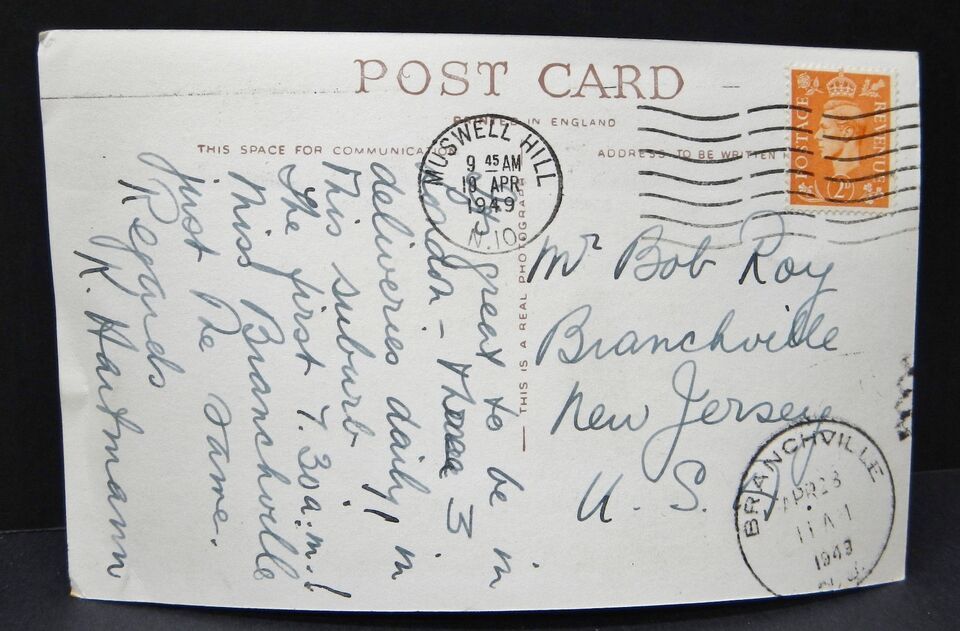 POST CARD
PRINTED IN ENGLAND
THIS SPACE FOR COMMUNICATION
ADDRESS TO BE WRITTEN
THIS IS A REAL PHOTOGRAPH
POSTAGE REVENUE
2D
MUSWELL HILL
9 45 AM
19 APR
1949
N.10
It's great to be in
London - 3
deliveries daily in
this suburb
The first 7.30 a.m.!
Miss Branchville
just the same.
Regards
K. Hartmann
Mr Bob Roy
Branchville
New Jersey
U.S.
BRANCHVILLE
APR 23
11 A
1949
N.J.